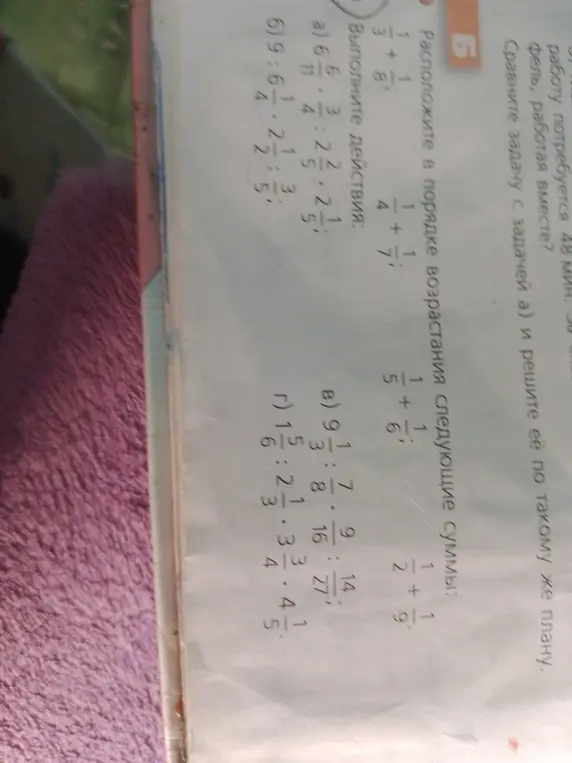 работу потребуется 48 мин.
фель, работая вместе?
Сравните задачу с задачей а) и решите её по такому же плану.
Б
Расположите в порядке возрастания следующие суммы:
1/3 + 1/8; 1/4 + 1/7; 1/5 + 1/6; 1/2 + 1/9.
Выполните действия:
а) 6 6/11 · 3/4 : 2 2/5 · 2 1/5; в) 9 1/3 : 7/8 · 9/16 : 14/27;
б) 9 : 6 1/4 · 2 1/2 : 3/5; г) 1 5/6 : 2 1/3 · 3 3/4 · 4 1/5.